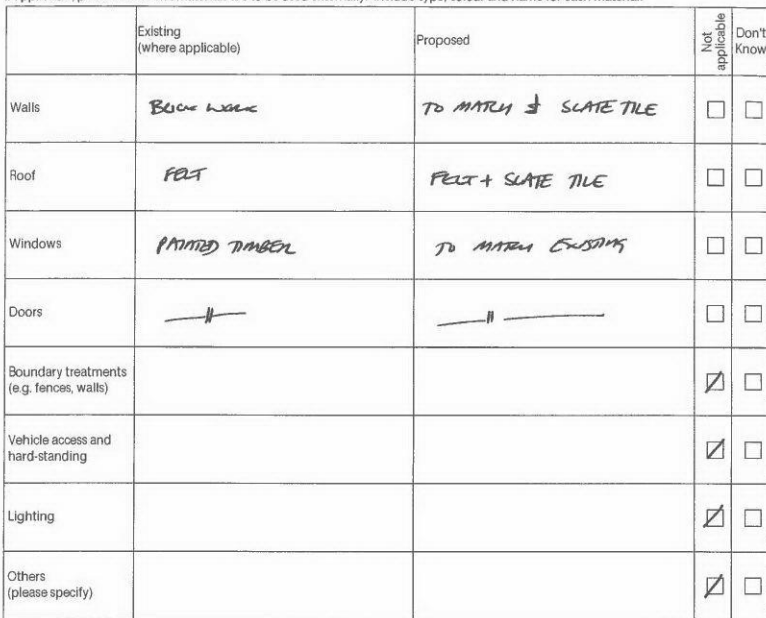 Existing
(where applicable)
Proposed
Not
applicable
Don't
Know
Walls
BRICK WORK
TO MATCH & SLATE TILE
Roof
FELT
FELT + SLATE TILE
Windows
PAINTED TIMBER
TO MATCH EXISTING
Doors
Boundary treatments
(e.g. fences, walls)
Vehicle access and
hard-standing
Lighting
Others
(please specify)